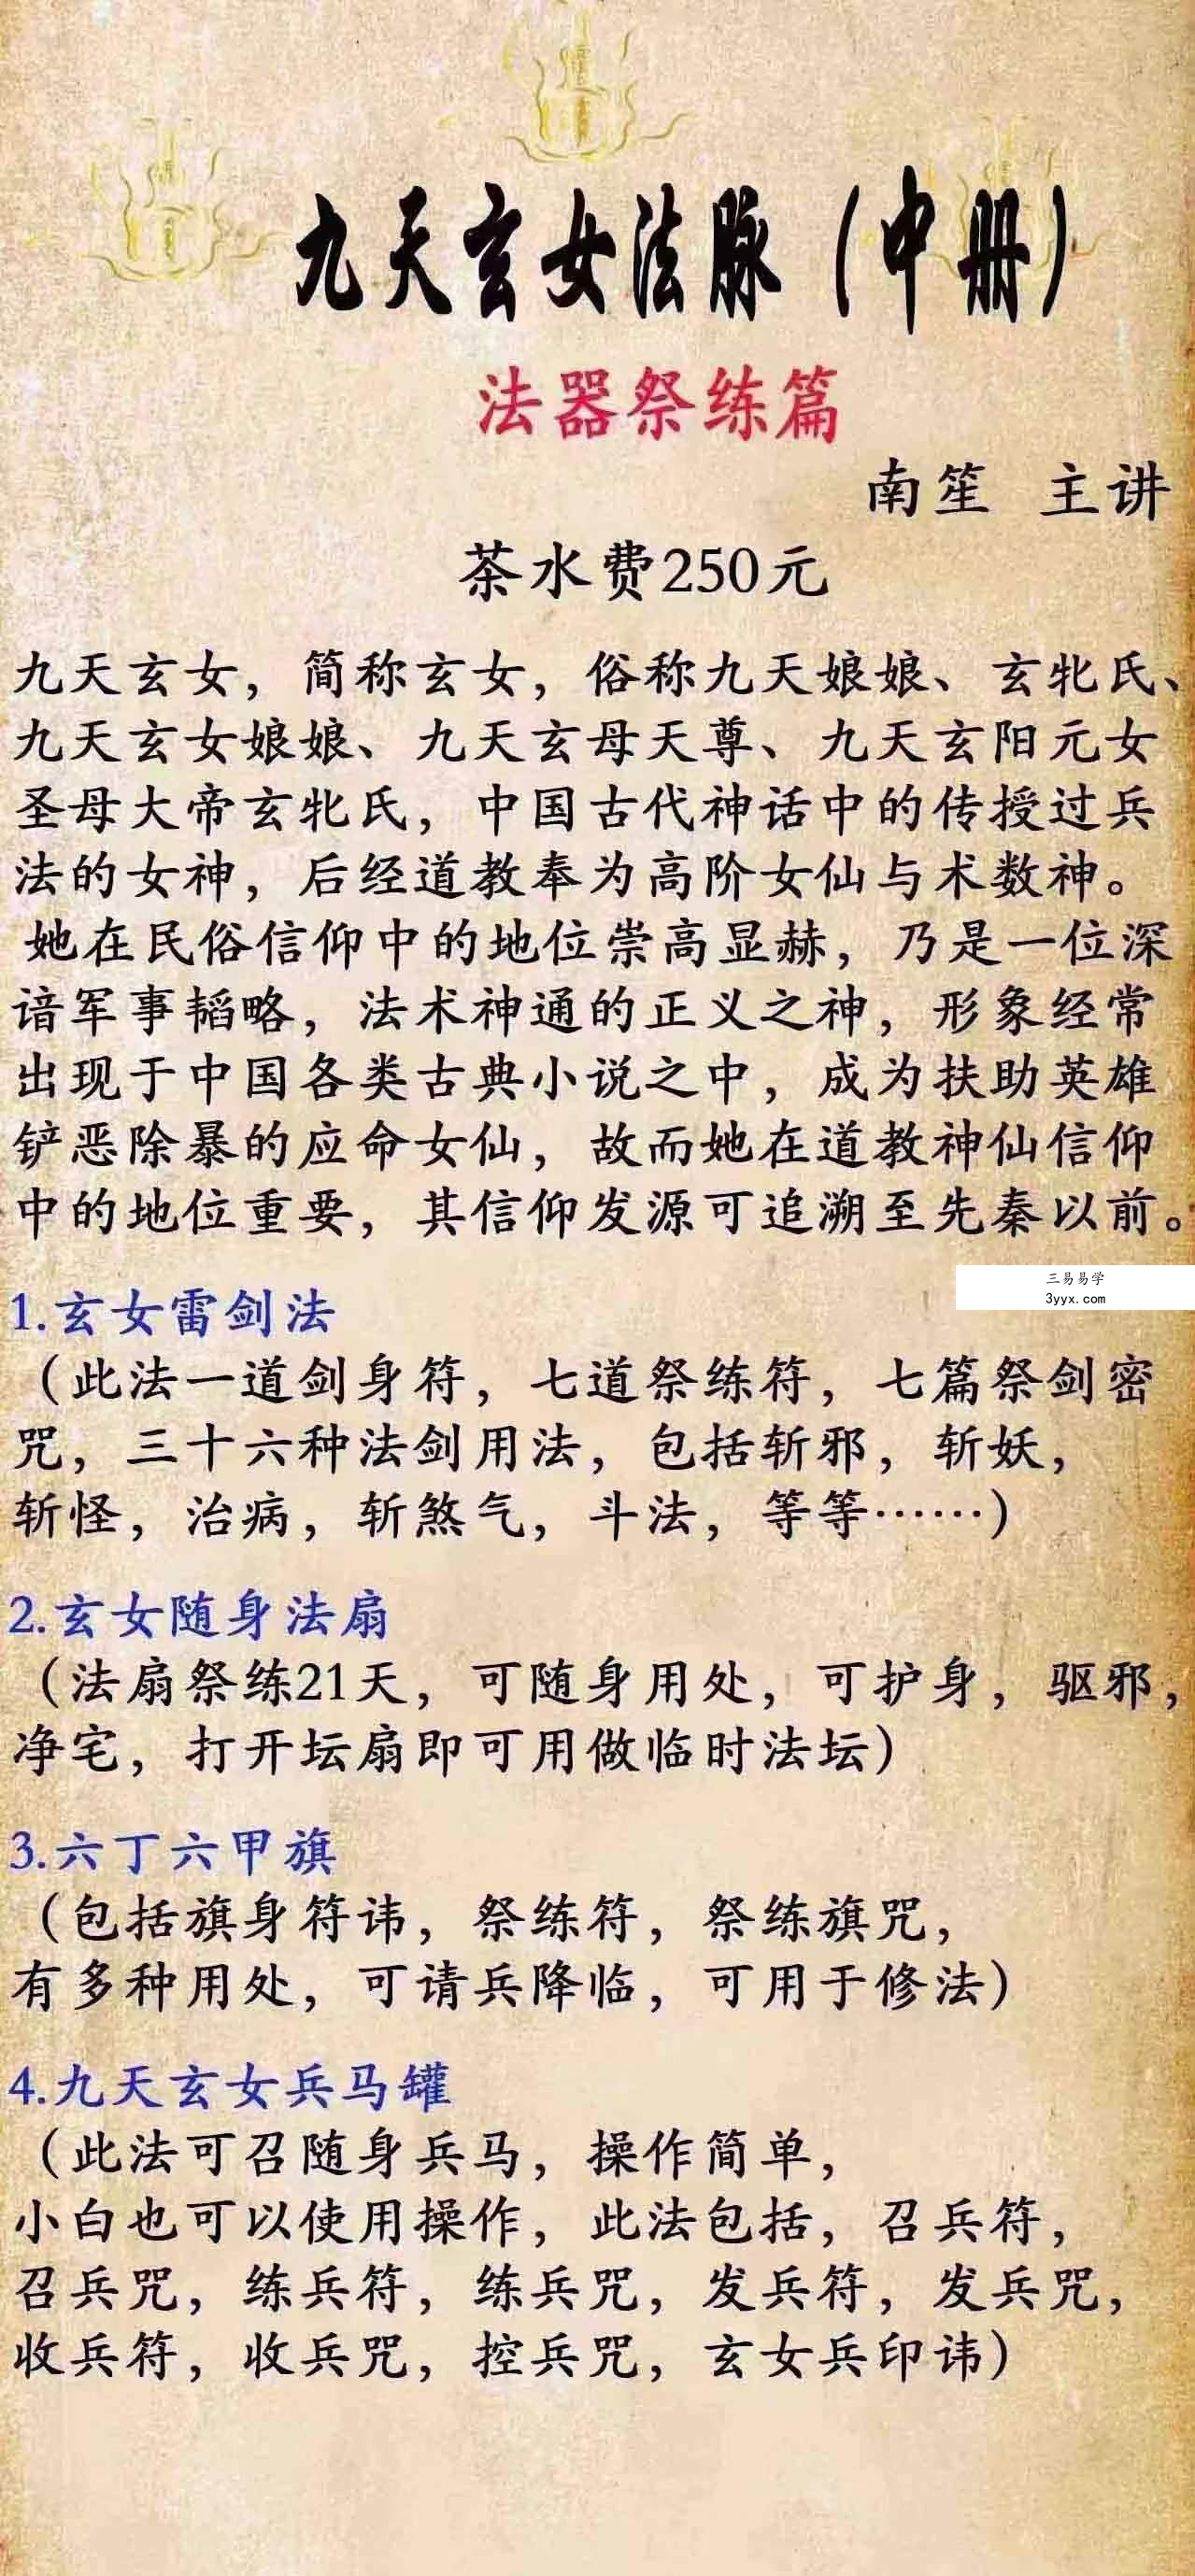 九天玄女法脉（中册）
法器祭练篇
南笙 主讲
茶水费250元
九天玄女，简称玄女，俗称九天娘娘、玄牝氏、
九天玄女娘娘、九天玄母天尊、九天玄阳元女
圣母大帝玄牝氏，中国古代神话中的传授过兵
法的女神，后经道教奉为高阶女仙与术数神。
她在民俗信仰中的地位崇高显赫，乃是一位深
谙军事韬略，法术神通的正义之神，形象经常
出现于中国各类古典小说之中，成为扶助英雄
铲恶除暴的应命女仙，故而她在道教神仙信仰
中的地位重要，其信仰发源可追溯至先秦以前。
三易易学
3yyx.com
1.玄女雷剑法
（此法一道剑身符，七道祭练符，七篇祭剑密
咒，三十六种法剑用法，包括斩邪，斩妖，
斩怪，治病，斩煞气，斗法，等等……）
2.玄女随身法扇
（法扇祭练21天，可随身用处，可护身，驱邪，
净宅，打开坛扇即可用做临时法坛）
3.六丁六甲旗
（包括旗身符讳，祭练符，祭练旗咒，
有多种用处，可请兵降临，可用于修法）
4.九天玄女兵马罐
（此法可召随身兵马，操作简单，
小白也可以使用操作，此法包括，召兵符，
召兵咒，练兵符，练兵咒，发兵符，发兵咒，
收兵符，收兵咒，控兵咒，玄女兵印讳）